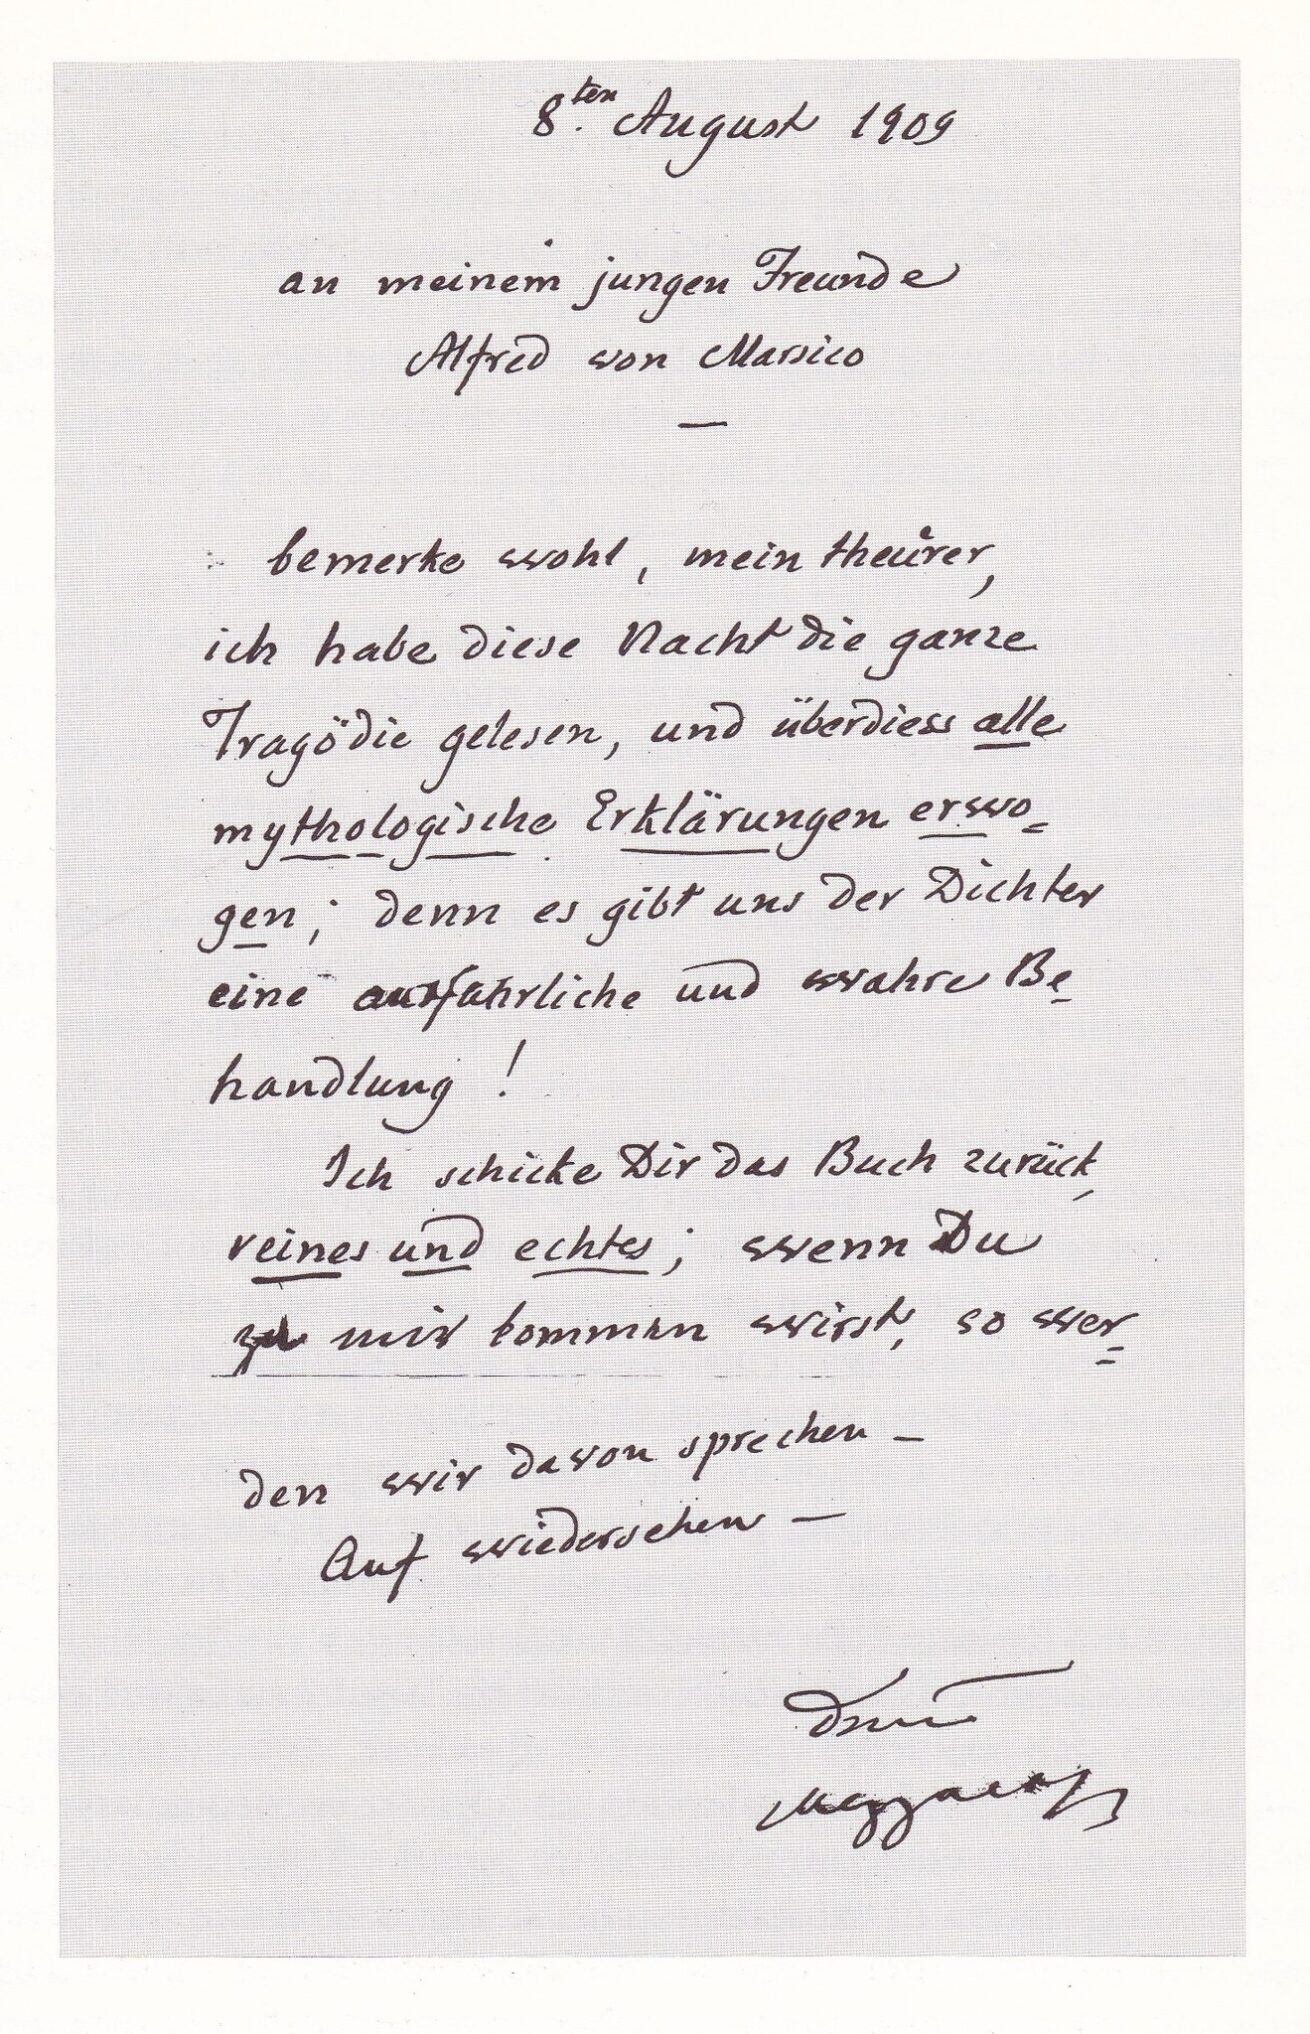 8.ten August 1909
an meinem jungen Freunde
Alfred von Marsico
—
bemerke wohl, mein theurer,
ich habe diese Nacht die ganze
Tragödie gelesen, und überdiess alle
mythologische Erklärungen erwo=
gen; denn es gibt uns der Dichter
eine ausführliche und wahre Be-
handlung!
Ich schicke Dir das Buch zurück,
reines und echtes; wenn Du
zu mir kommen wirst, so wer=
den wir davon sprechen —
Auf wiedersehen —